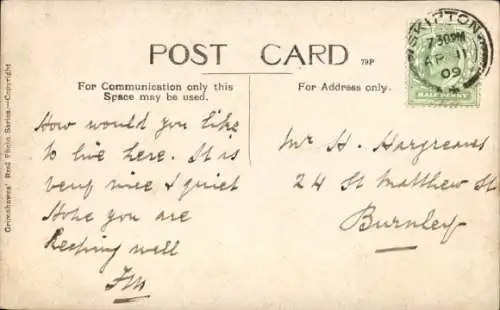 POST CARD 79P
For Communication only this
Space may be used.
For Address only.
SKIPTON
7.30PM
AP 11
09
HALFPENNY
Grimshawes' Real Photo Series.—Copyright
How would you like
to live here. It is
very nice & quiet
Hope you are
keeping well
Mr H. Hargreaves
24 St Matthew St
Burnley